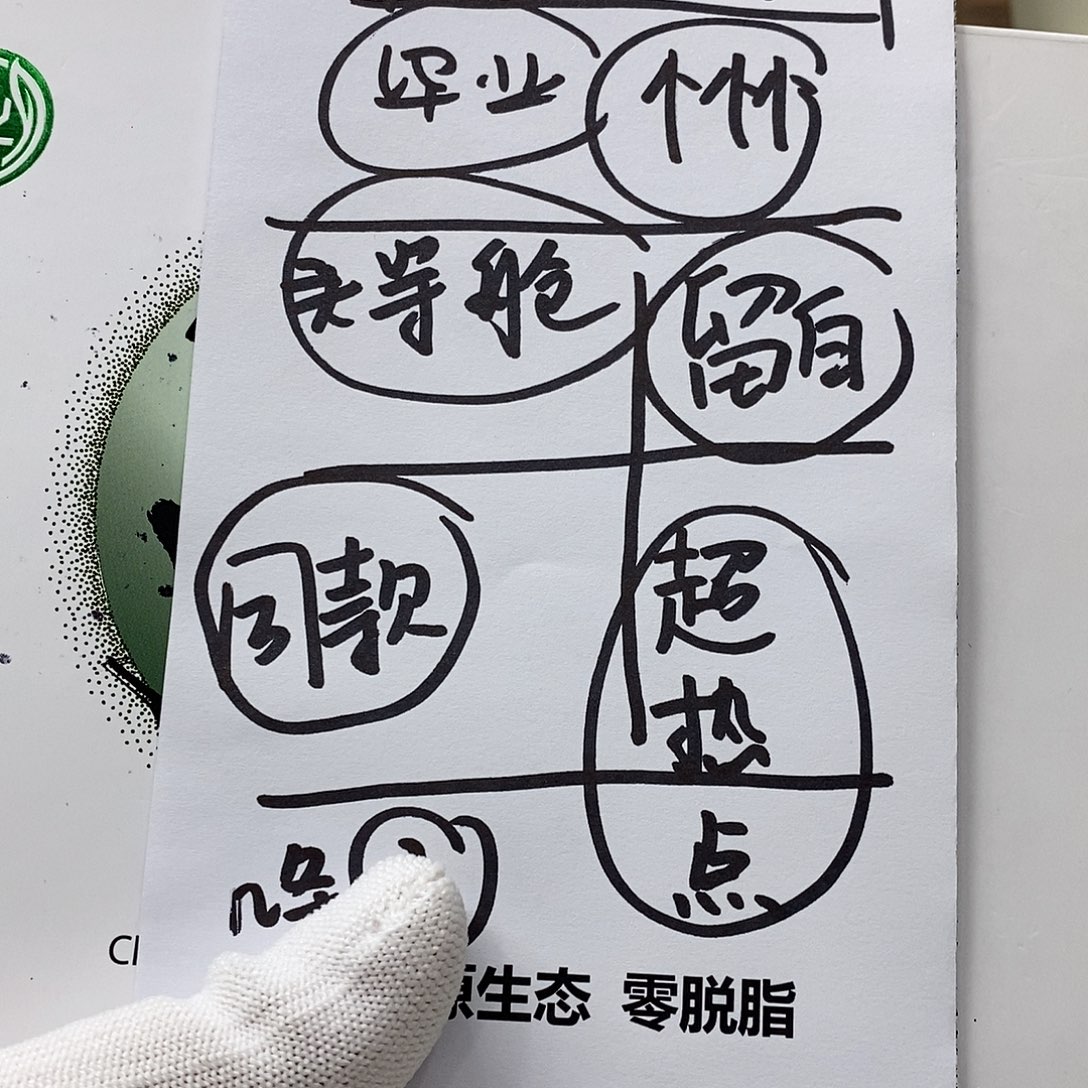 毕业
头等舱 留白
同款 超
热
点
降
生态 零脱脂